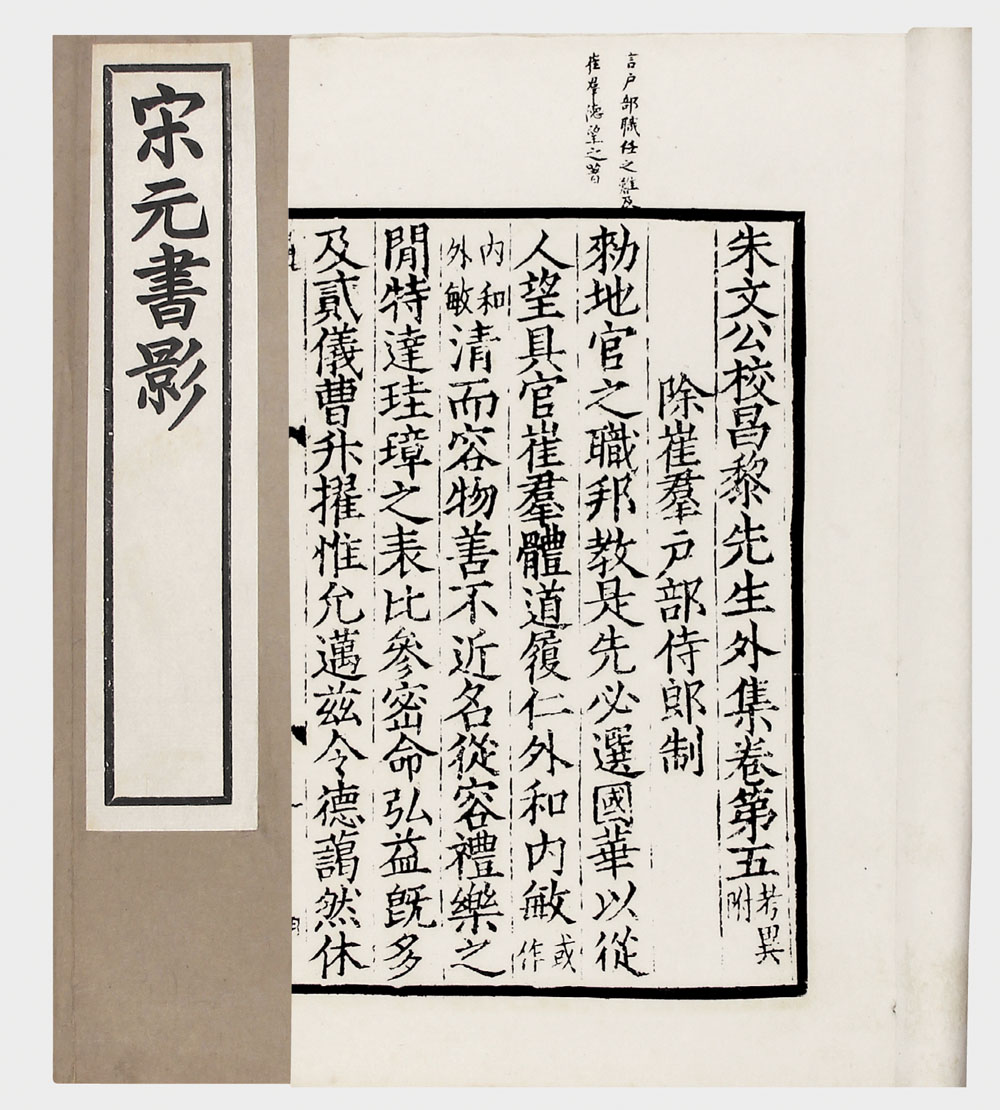 宋元書影
言戶部職任之難及
崔羣德望之著
朱文公校昌黎先生外集卷第五考異附
除崔羣戶部侍郎制
勑地官之職邦教是先必選國華以從
人望具官崔羣體道履仁外和内敏或作
内和外敏清而容物善不近名從容禮樂之
閒特達珪璋之表比參密命弘益旣多
及貳儀曹升擢惟允邁兹令德藹然休